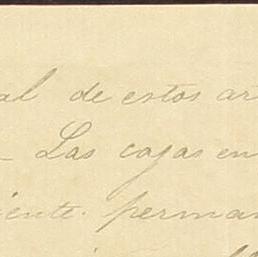 al de estos ar
- Las cajas en
iente. perman